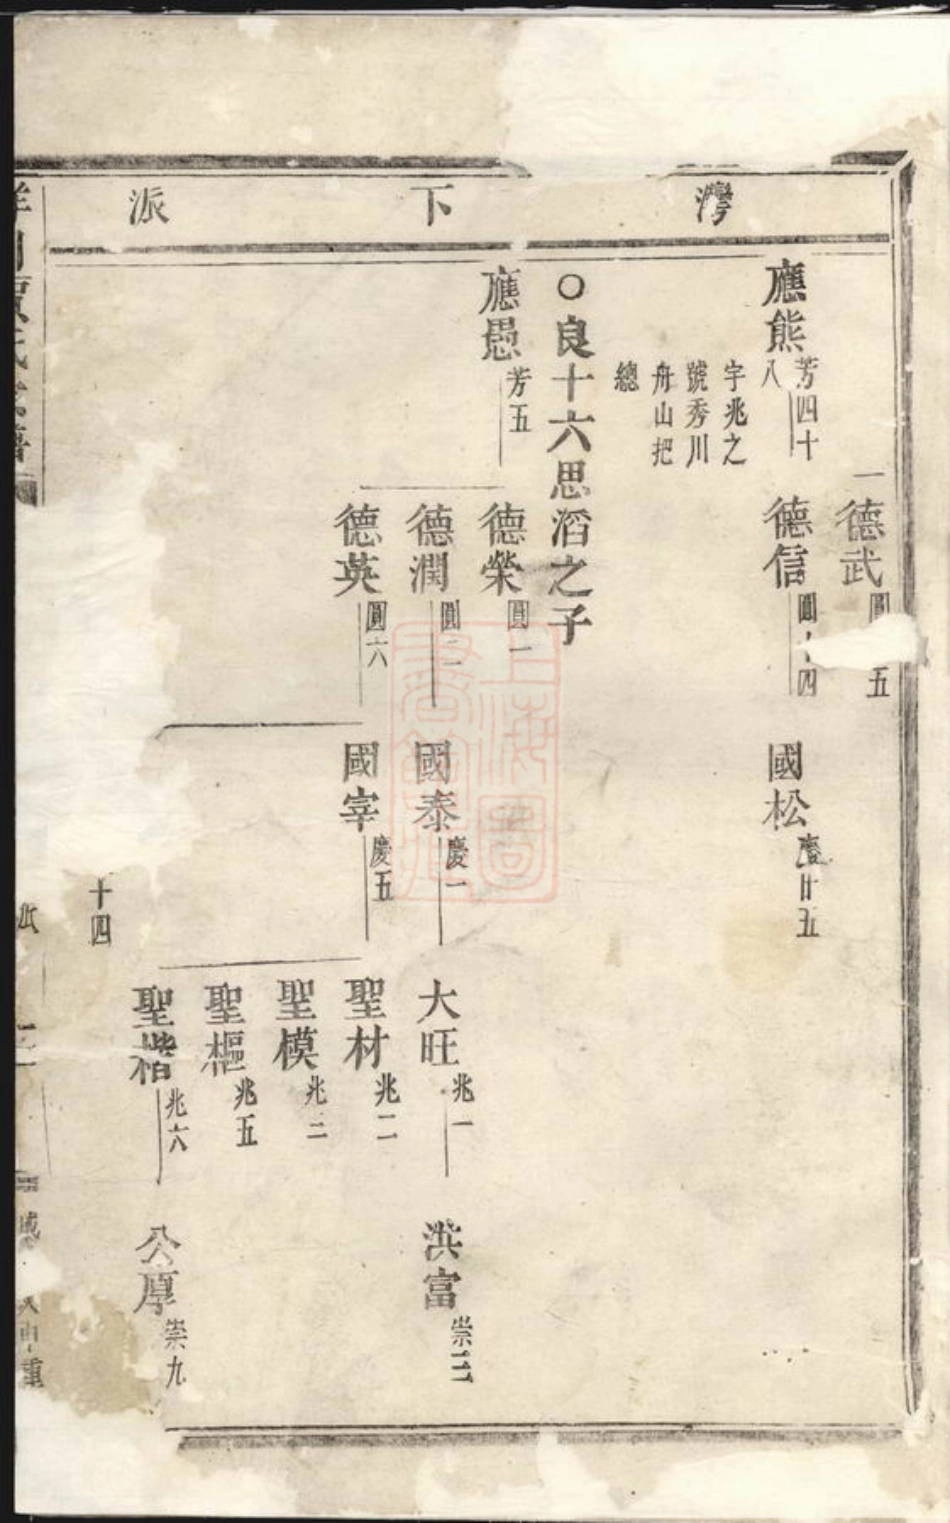 灣下派
德武 圓 五
應熊 芳四十八
字兆之
號秀川
舟山把
總
德信 圓十四
國松 慶廿五
○良十六思滔之子
應愚 芳五
德榮 圓一
德潤 圓二
德英 圓六
國泰 慶一
國宰 慶五
大旺 兆一
聖材 兆二
聖模 兆三
聖樞 兆五
聖楷 兆六
洪富 崇三
公厚 崇九
十四
上海圖書館藏